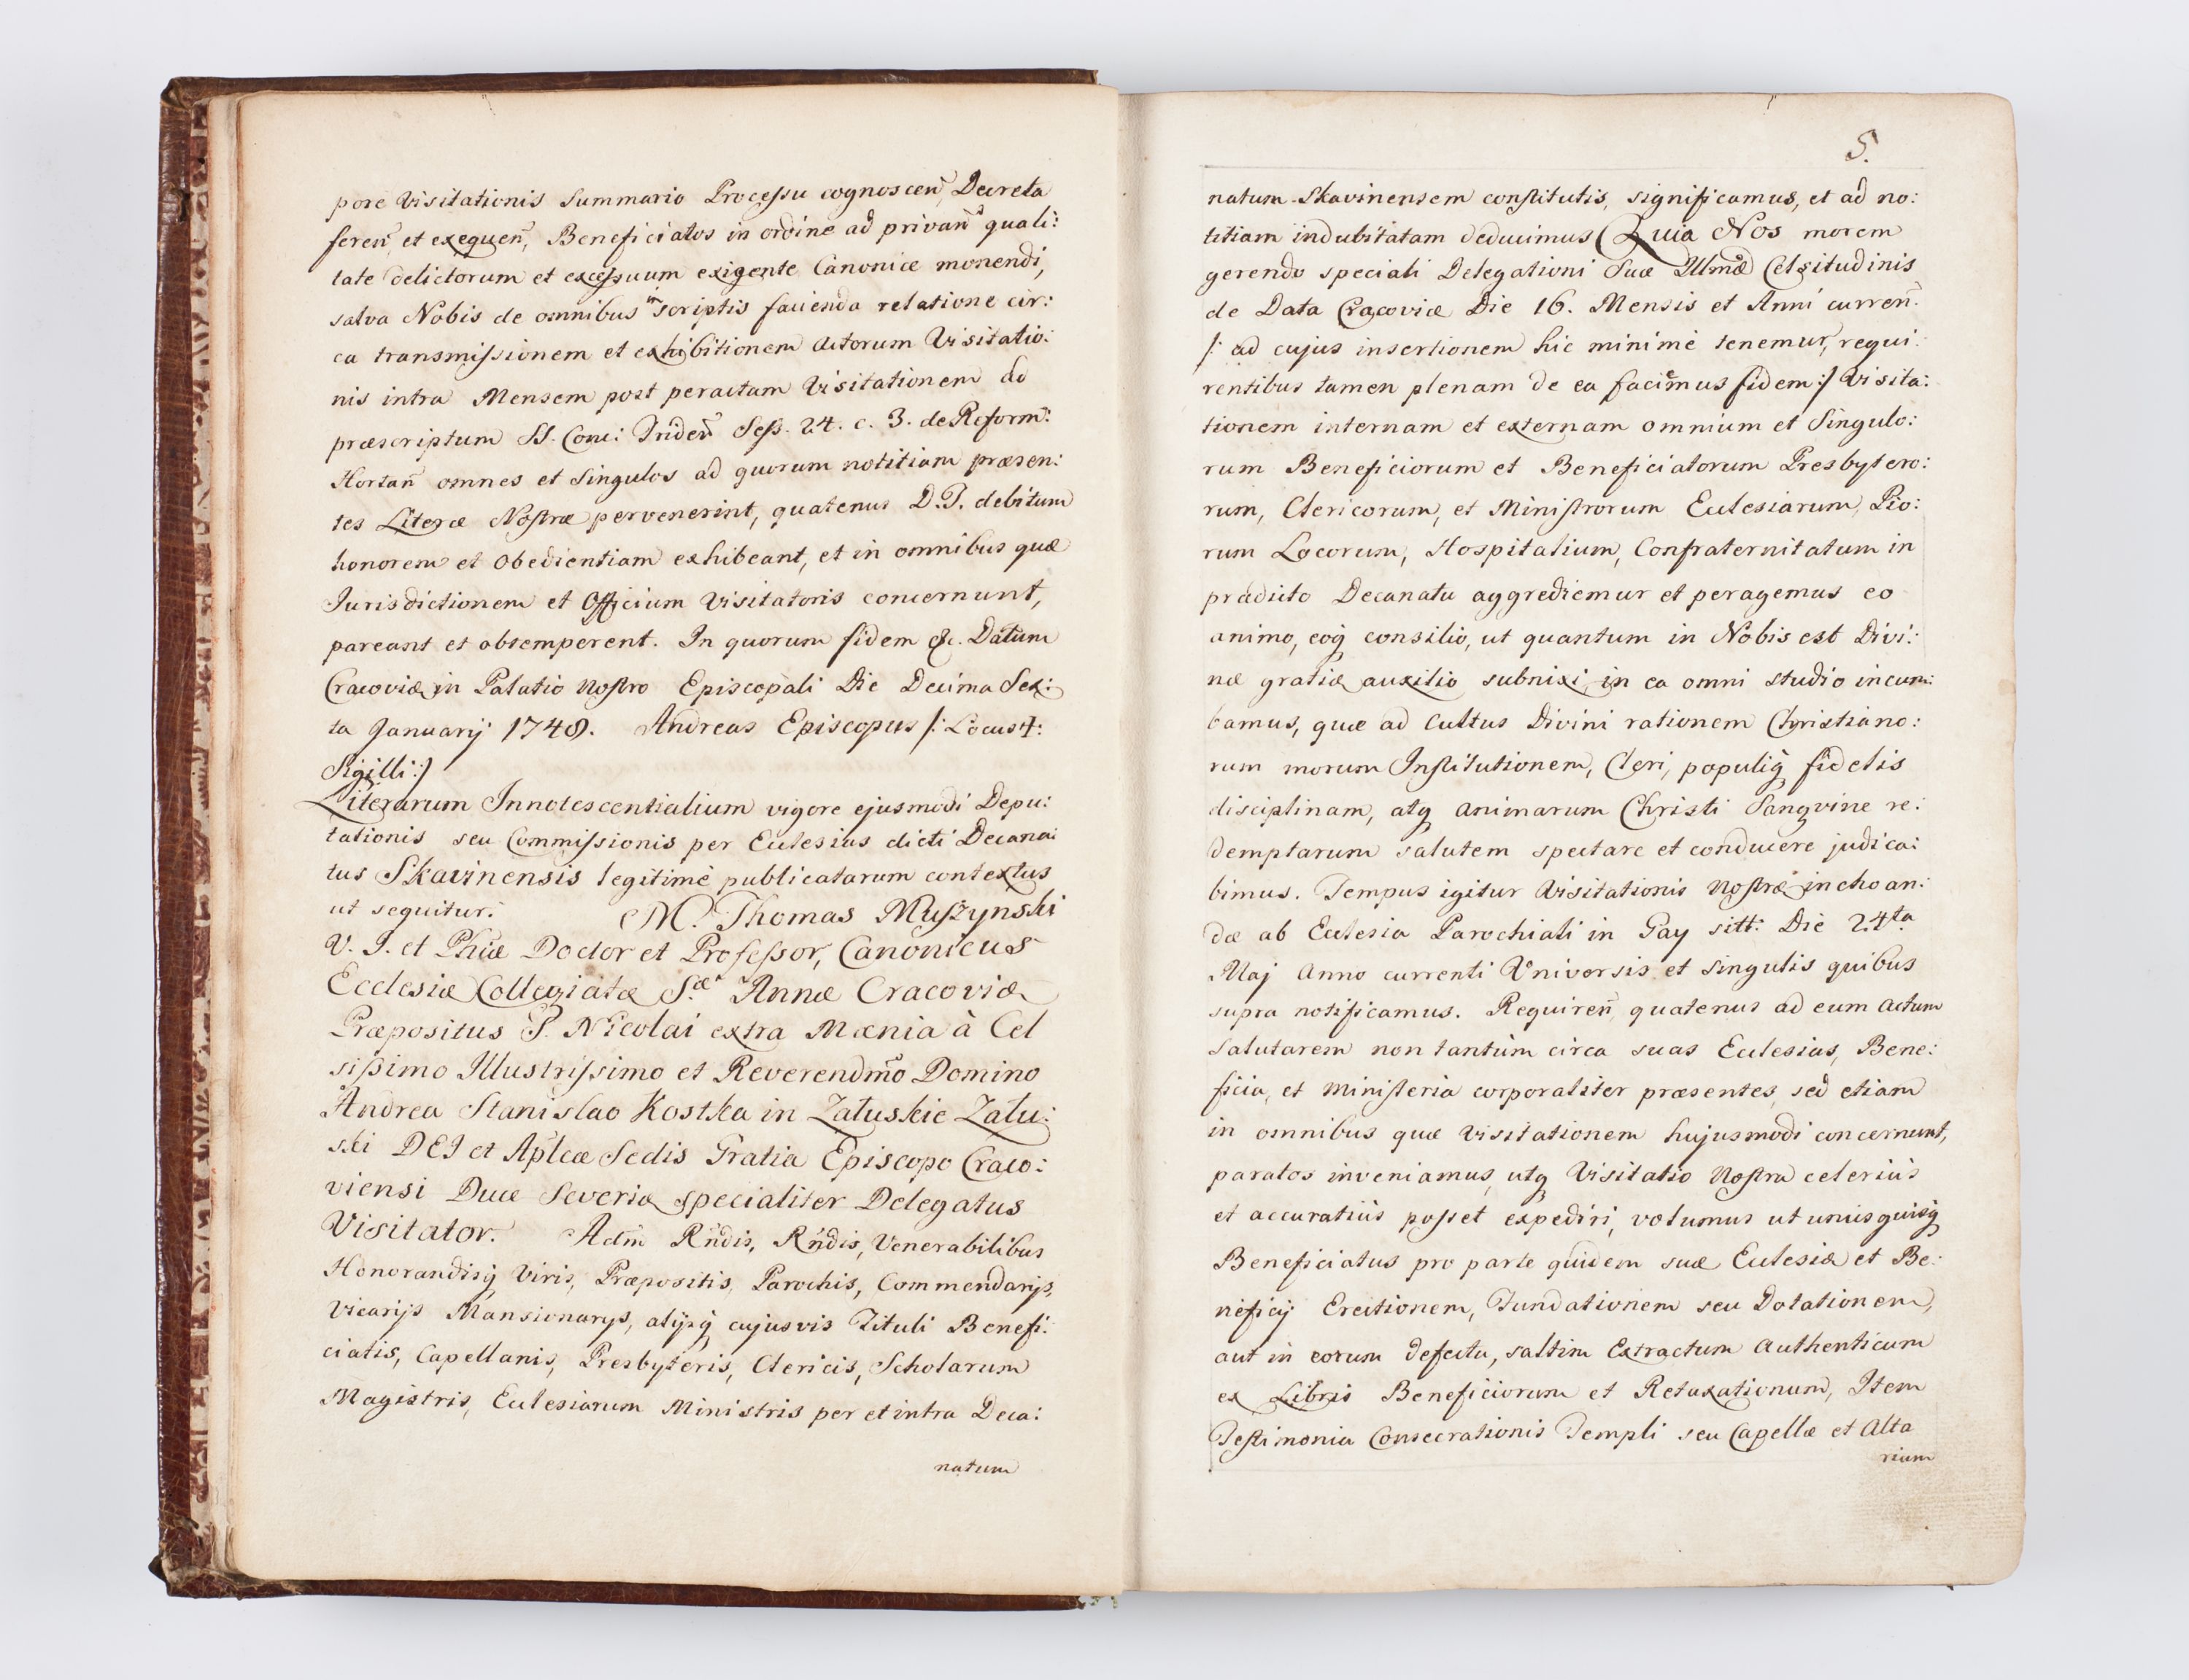 pore Visitationis Summario Processu cognoscen̄, Decreta
feren̄ et exequen̄, Beneficiatos in ordine ad privan̄d quali:
tate delictorum et excessuum exigente Canonice monendi,
salva Nobis de omnibus in scriptis facienda relatione cir:
ca transmissionem et exhibitionem Actorum Visitatio:
nis intra Mensem post peractam Visitationem ad
præscriptum SS. Conc: Triden̄ Sess. 24. c. 3. de Reform:
Hortan̄ omnes et Singulos ad quorum notitiam præsen:
tes Literæ Nostræ pervenerint, quatenus D.T. debitum
honorem et Obedientiam exhibeant, et in omnibus quæ
Jurisdictionem et Officium Visitatoris concernunt,
pareant et obtemperent. In quorum fidem &c. Datum
Cracoviæ in Palatio Nostro Episcopali Die Decima Sex:
ta Januarij 1748. Andreas Episcopus /: Locus :
Sigilli:/
Literarum Innotescentialium vigore ejusmodi Depu:
tationis seu Commissionis per Ecclesias dicti Decana:
tus Skavinensis legitimè publicatarum contextus
ut sequitur: M. Thomas Muszynski
V. J. et Phiæ Doctor et Professor, Canonicus
Ecclesiæ Collegiatæ S.æ Annæ Cracoviæ
Præpositus S. Nicolai extra Mænia à Cel
sissimo Illustrissimo et Reverendm̄o Domino
Andrea Stanislao Kostka in Zaluskie Zalu:
ski DEI et Aplcæ Sedis Gratia Episcopo Craco:
viensi Duce Severiæ specialiter Delegatus
Visitator. Adm̄ Rn̄dis, Rn̄dis, Venerabilibus
Honorandisq; Viris, Præpositis, Parochis, Commendarijs,
Vicarijs Mansionarijs, alijsq; cujusvis Tituli Benefi:
ciatis, Capellanis, Presbyteris, Clericis, Scholarum
Magistris, Ecclesiarum Ministris per et intra Deca:
natum
5.
natum Skavinensem constitutis, significamus, et ad no:
titiam indubitatam deducimus Quia Nos morem
gerendo speciali Delegationi Suæ Illmæ Celsitudinis
de Data Cracoviæ Die 16. Mensis et Anni curren̄.
/: ad cujus insertionem hic minimè tenemur, requi:
rentibus tamen plenam de ea faciemus fidem:/ Visita:
tionem internam et externam omnium et Singulo:
rum Beneficiorum et Beneficiatorum Presbytero:
rum, Clericorum, et Ministrorum Ecclesiarum, Pio:
rum Locorum, Hospitalium, Confraternitatum in
prædicto Decanatu aggrediemur et peragemus eo
animo, eoq; consilio, ut quantum in Nobis est Divi:
næ gratiæ auxilio subnixi, in ea omni studio incum:
bamus, quæ ad Cultus Divini rationem Christiano:
rum morum Institutionem, Cleri, populiq; fidelis
disciplinam, atq; animarum Christi Sangvine re:
demptarum salutem spectare et conducere judica:
bimus. Tempus igitur Visitationis Nostræ inchoan:
dæ ab Ecclesia Parochiali in Gay sitt: Die 24ta
Maj Anno currenti Universis et Singulis quibus
supra notificamus. Requiren̄, quatenus ad eum actum
Salutarem non tantùm circa suas Ecclesias, Bene:
ficia, et Ministeria corporaliter præsentes, sed etiam
in omnibus quæ Visitationem hujusmodi concernunt,
paratos inveniamus, utq; Visitatio Nostra celeriùs
et accuratiùs posset expediri, volumus ut unusquisq;
Beneficiatus pro parte quidem suæ Ecclesiæ et Be:
neficij Erectionem, Fundationem seu Dotationem,
aut in eorum defectu, saltim Extractum Authenticum
ex Libris Beneficiorum et Retaxationum, Item
Testimonia Consecrationis Templi seu Capellæ et Alta
rium